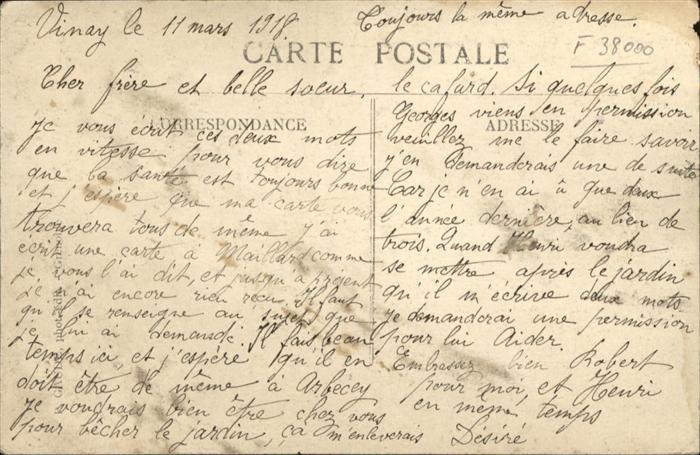 Vinay le 11 mars 1918
Toujours la même adresse.
CARTE POSTALE
F 38000
CORRESPONDANCE
ADRESSE
Cher frère et belle soeur,
je vous écrit ces deux mots
en vitesse pour vous dire
que la santé est toujours bonne
et j'espère que ma carte vous
trouvera tous de même j'ai
écrit une carte à Maillard comme
je vous l'ai dit, et jusqu'a présent
je n'ai encore rien recu. Il faut
qu'il se renseigne au sujet que
je lui ai demandé. Il fais beau
temps ici et j'espère qu'il en
doit être de même à Arbecey
je voudrais bien être chez vous
pour bêcher le jardin, ça m'enleverais
le cafard. Si quelques fois
Georges viens en permission
veuillez me le faire savoir
j'en demanderais une de suite
Car je n'en ai u que deux
l'année dernière, au lien de
trois. Quand Henri voudra
se mettre après le jardin
qu'il m'écrive deux mots
je demanderai une permission
pour lui Aider.
Embrassez bien Robert
pour moi, et Henri
en même temps
Désiré